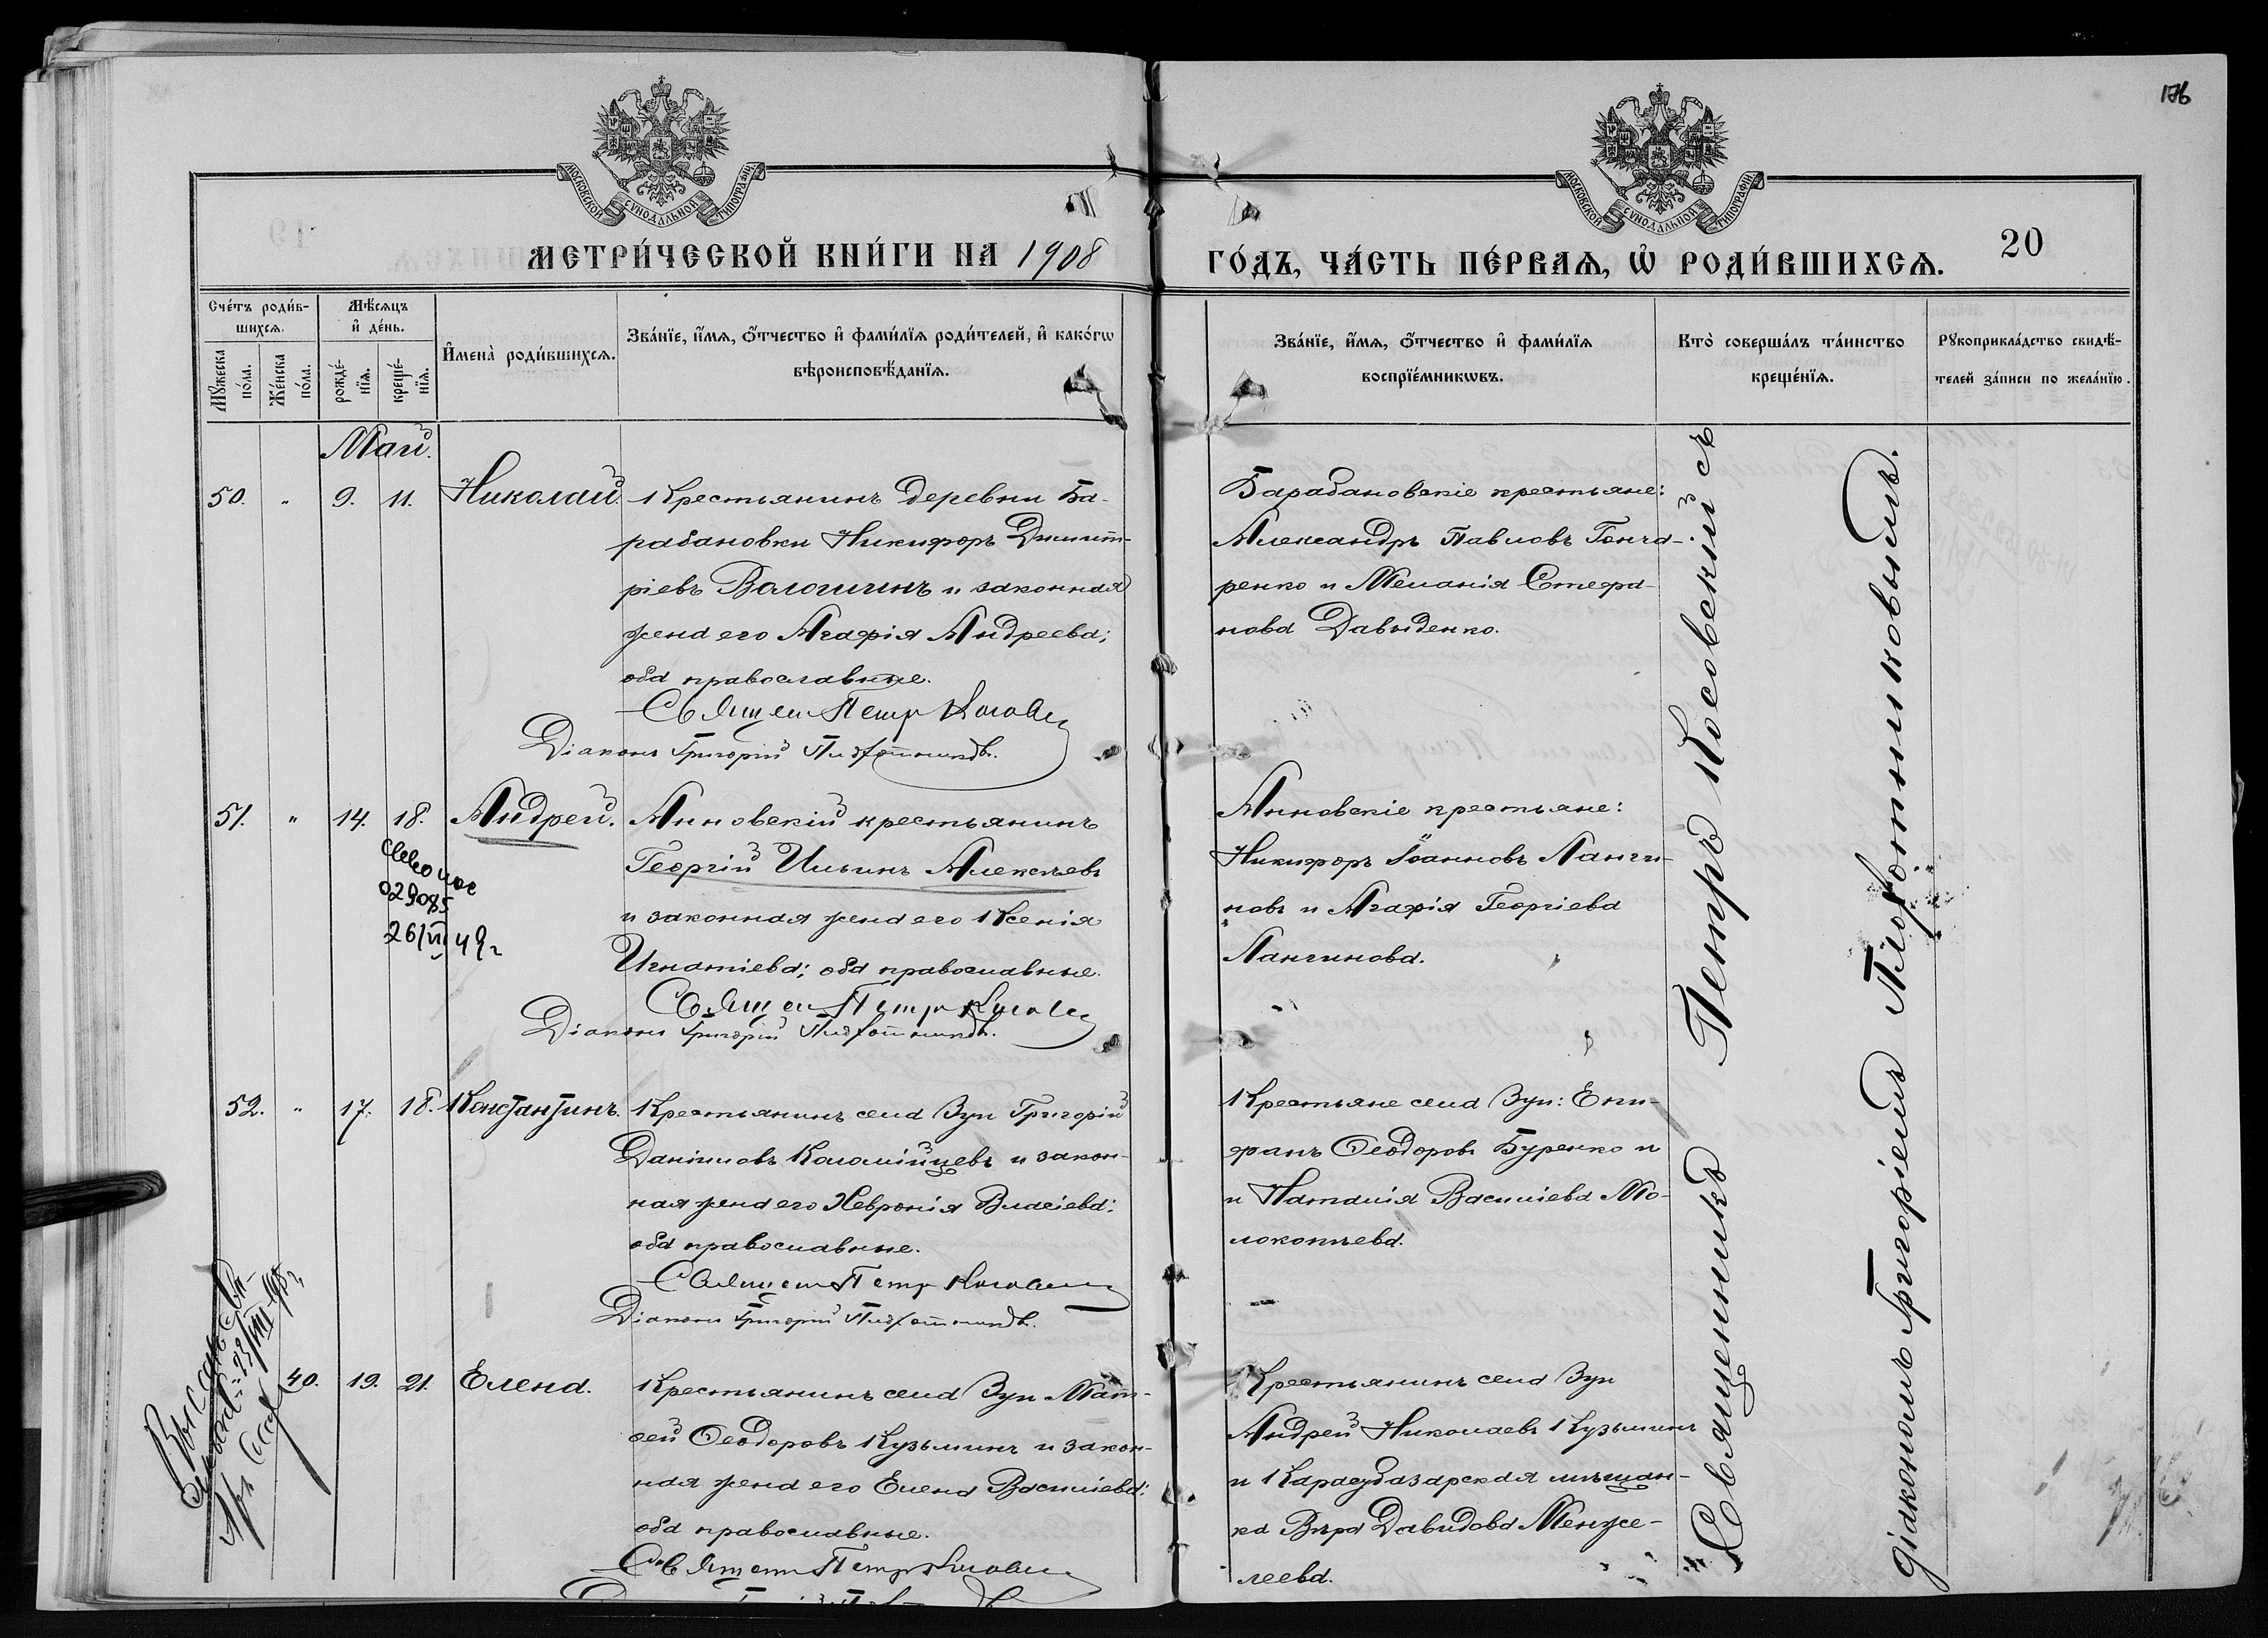 176
МОСКОВСКОЙ СѴНОДАЛЬНОЙ ТИПОГРАФИИ.
МОСКОВСКОЙ СѴНОДАЛЬНОЙ ТИПОГРАФИИ.
МЕТРИ́ЧЕСКОЙ КНИ́ГИ НА 1908
ГО́ДЪ, ЧА́СТЬ ПЕ́РВАѦ, Ѡ҆ РОДИ́ВШИХСѦ. 20
Сче́тъ роди́в-
шихсѧ.
Мꙋ́жеска
по́ла.
Же́нска
по́ла.
Мѣ́сѧцъ
и҆ де́нь.
рожде́-
нїѧ.
креще́-
нїѧ.
И҆мена̀ роди́вшихсѧ.
Зва́нїе, и҆́мѧ, ѻ҆́тчество и҆ фами́лїѧ роди́телей, и҆ како́гѡ
вѣроисповѣ́данїѧ.
Зва́нїе, и҆́мѧ, ѻ҆́тчество и҆ фами́лїѧ
воспрїе́мникѡвъ.
Кто̀ соверша́лъ та́инство
креще́нїѧ.
Рꙋкоприкла́дство свидѣ́-
телей за́писи по жела́нїю.
Май.
50. " 9. 11. Николай. Крестьянинъ деревни Ба-
рабановки Никифоръ Димит-
ріевъ Волошинъ и законная
жена его Агафія Андреева;
оба православные.
Священ Петр Косовск
Діаконъ Григорій Плотниковъ.
Барабановскіе крестьяне:
Александръ Павловъ Гонча-
ренко и Меланія Стефа-
нова Давыденко.
51. " 14. 18. Андрей. Анновскій крестьянинъ
Георгій Ильинъ Алексѣевъ
и законная жена его Ксенія
Игнатіева; оба православные.
Священ Петр Косовск
Діаконъ Григорій Плотниковъ.
029085
26/VI 49г
Анновскіе крестьяне:
Никифоръ Іоанновъ Лонги-
новъ и Агафія Георгіева
Лонгинова.
52. " 17. 18. Константинъ. Крестьянинъ села Зуи Григорій
Даніиловъ Коломійцевъ и закон-
ная жена его Хевронія Власіева;
оба православные.
Священ Петр Косовск
Діаконъ Григорій Плотниковъ.
Крестьяне села Зуи: Епи-
фанъ Ѳеодоровъ Буренко и
и Наталія Василіева Мо-
локоѣева.
40. 19. 21. Елена. Крестьянинъ села Зуи Мат-
ѳей Ѳеодоровъ Кузьминъ и закон-
ная жена его Елена Василіева;
оба православные.
Священ Петр Косовск
Крестьянинъ села Зуи
Андрей Николаевъ Кузьминъ
и Карасубазарская мѣщан-
ка Вѣра Давидова Менже-
леева.
Священникъ Петръ Косовскій съ
діакономъ Григоріемъ Плотниковымъ.